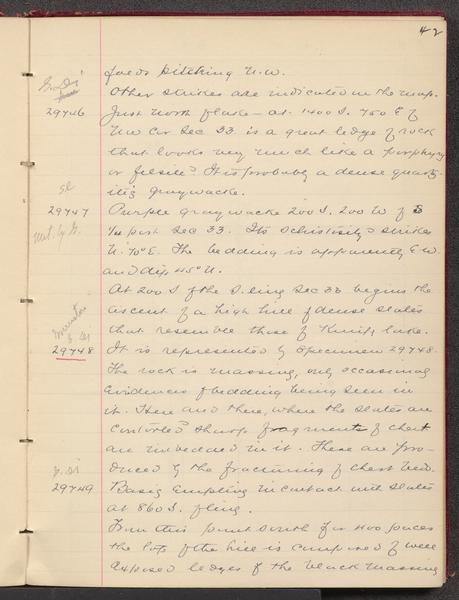 42
folds pitching N.W.
Other strikes are indicated on the map.
29746 Just North of lake - at 1400 S. 750 E of
NW Cor Sec 33. is a great ledge of rock
that looks very much like a porphyry
or felsite. It is probably a dense quartz-
itic graywacke.
sl
29747 Purple graywacke 200 S. 200 W of S
1/4 post Sec 33. Its schistosity strikes
N. 70° E. The bedding is apparently E W.
and dip 45° N.
At 200 S of the S. line Sec 33 begins the
ascent of a high hill of dense slates
that resemble those of Knife lake.
29748 It is represented by Specimen 29748.
The rock is massive, only occasional
evidences of bedding being seen in
it. Here and there, where the slates are
contorted sharp fragments of chert
are imbedded in it. These are pro-
duced by the fracturing of chert beds.
29749 Basic eruptive in contact with slates
at 860 S. of line.
From this point South for 400 paces
the top of the hill is composed of well
exposed ledges of the black massive